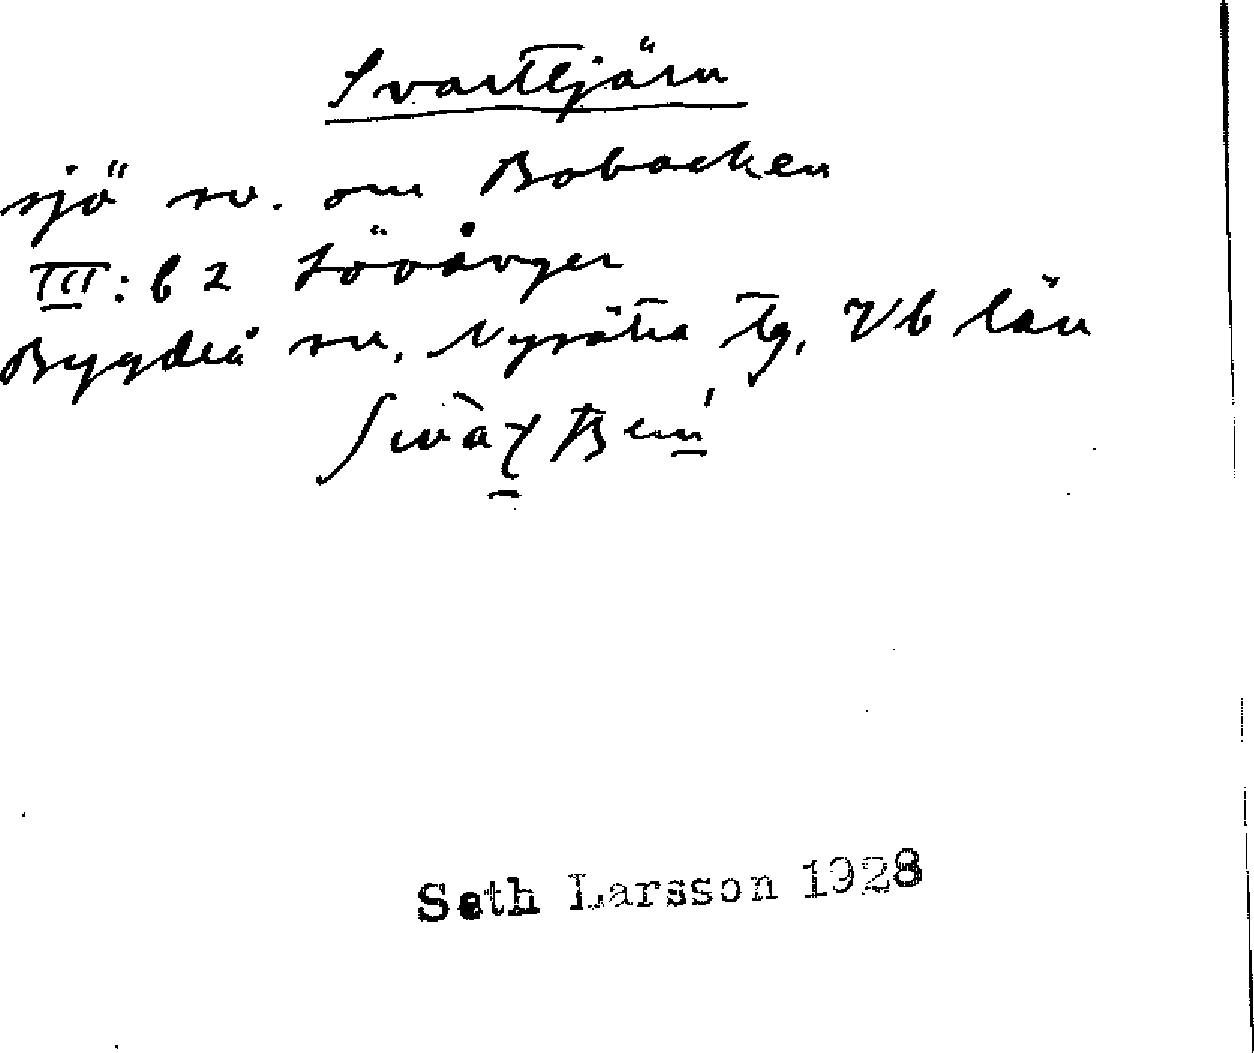 Svarttjärn
sjö sv. om Bobacken
III: b 2 Lövånger
Bygdeå sn, Nysätra tg, Vb län
Seth Larsson 1928